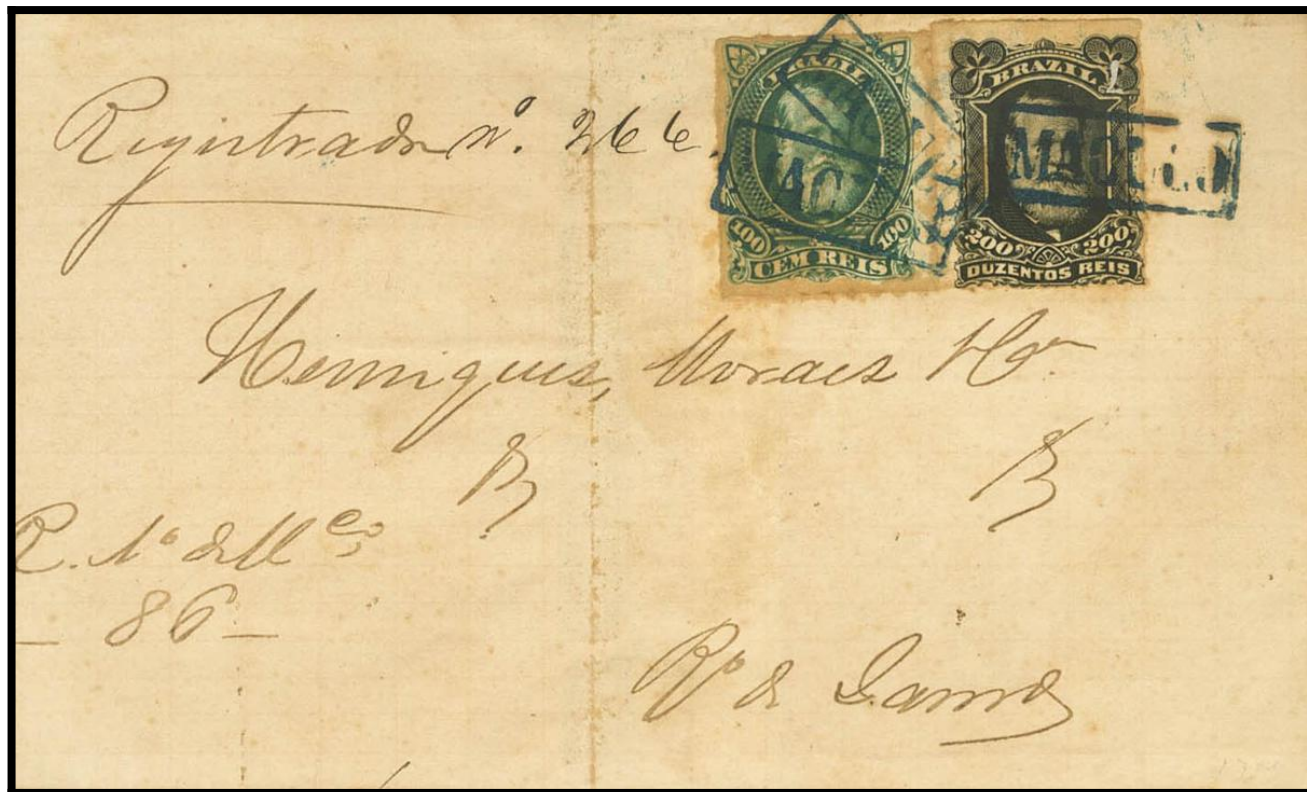 Registrado Nº. 266.
BRAZIL
100 100
CEM REIS
BRAZIL
200 200
DUZENTOS REIS
Henriques, Moraes
R. 1º de Mço
86
Rº de Janrº